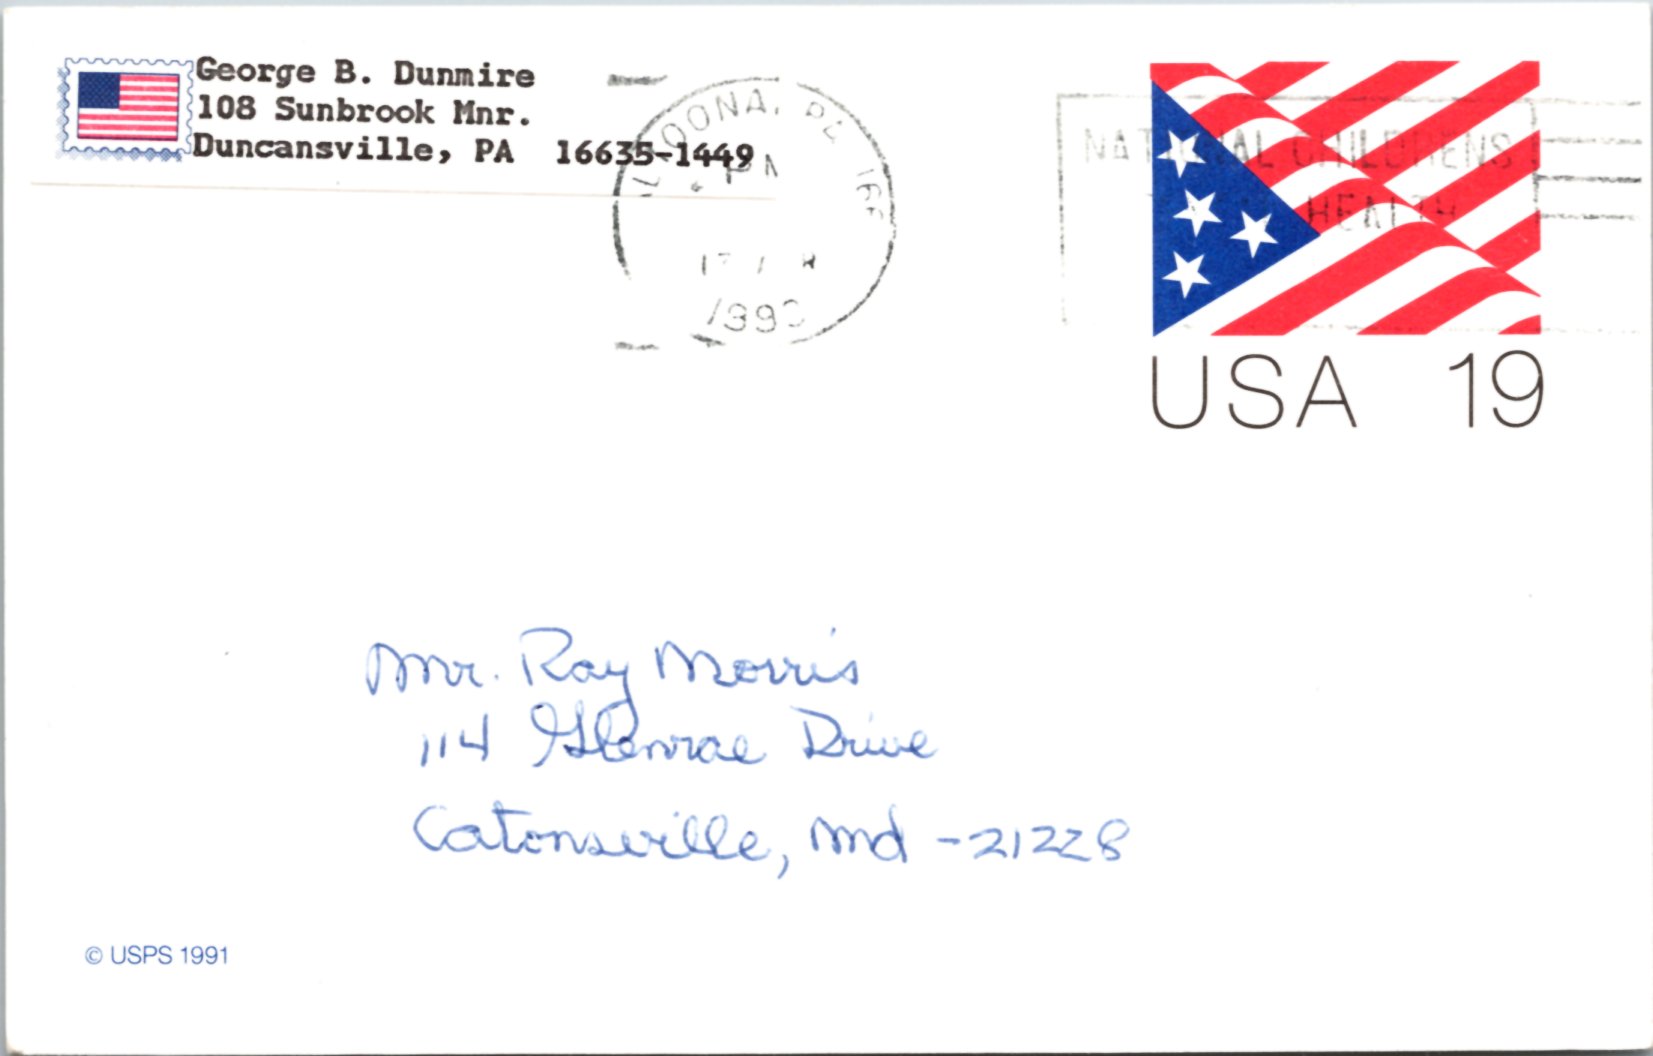 George B. Dunmire
108 Sunbrook Mnr.
Duncansville, PA 16635-1449
PM
NATIONAL CHILDRENS
HEALTH
USA 19
Mr. Ray Morris
114 Glenrae Drive
Catonsville, Md - 21228
© USPS 1991